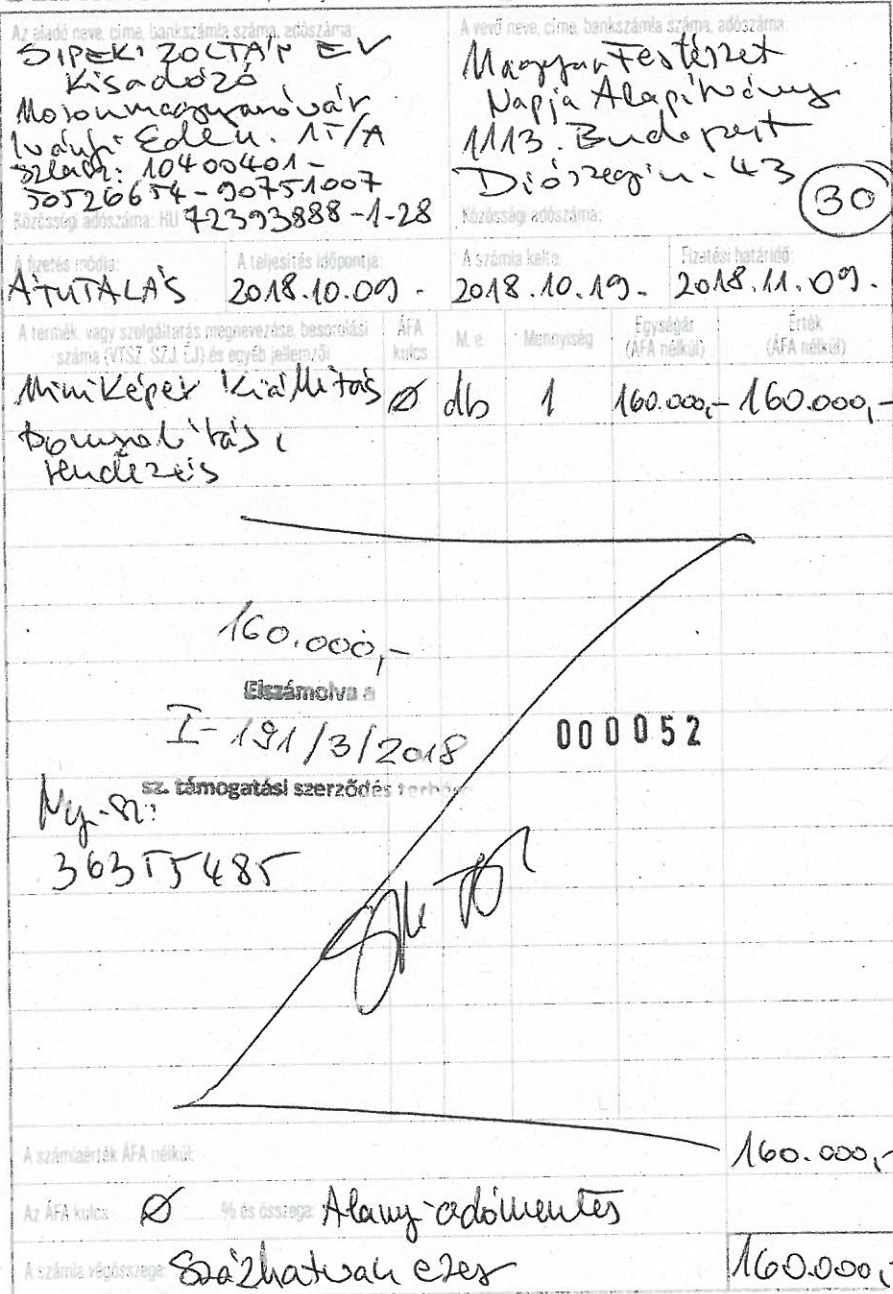 Az eladó neve, címe, bankszámla száma, adószáma:
SIPEKI ZOLTÁN EV
Kisadózó
Mosonmagyaróvár
Iványi Ede u. 15/A
Szlasz: 10400401-
50526654-90751007
Közösségi adószáma: HU 72393888-1-28
A vevő neve, címe, bankszámla száma, adószáma:
Magyar Festészet
Napja Alapítvány
1113. Budapest
Diószegi u. 43
30
Közösségi adószáma:
A fizetés módja:
ÁTUTALÁS
A teljesítés időpontja:
2018.10.09.
A számla kelte:
2018.10.19.
Fizetési határidő:
2018.11.09.
A termék, vagy szolgáltatás megnevezése, besorolási
száma (VTSZ, SZJ, ÉJ) és egyéb jellemzői
ÁFA
kulcs
M. e.
Mennyiség
Egységár
(ÁFA nélkül)
Érték
(ÁFA nélkül)
Mini Képek Kiállítás Ø db 1 160.000,- 160.000,-
rendezés
160.000,-
Elszámolva a
I-191/3/2018
000052
sz. támogatási szerződés terhére
Ny-sz:
36355485
A számlaérték ÁFA nélkül: 160.000,-
Az ÁFA kulcs Ø % és összege: Alany adómentes
A számla végösszege: Százhatvan ezer 160.000,-